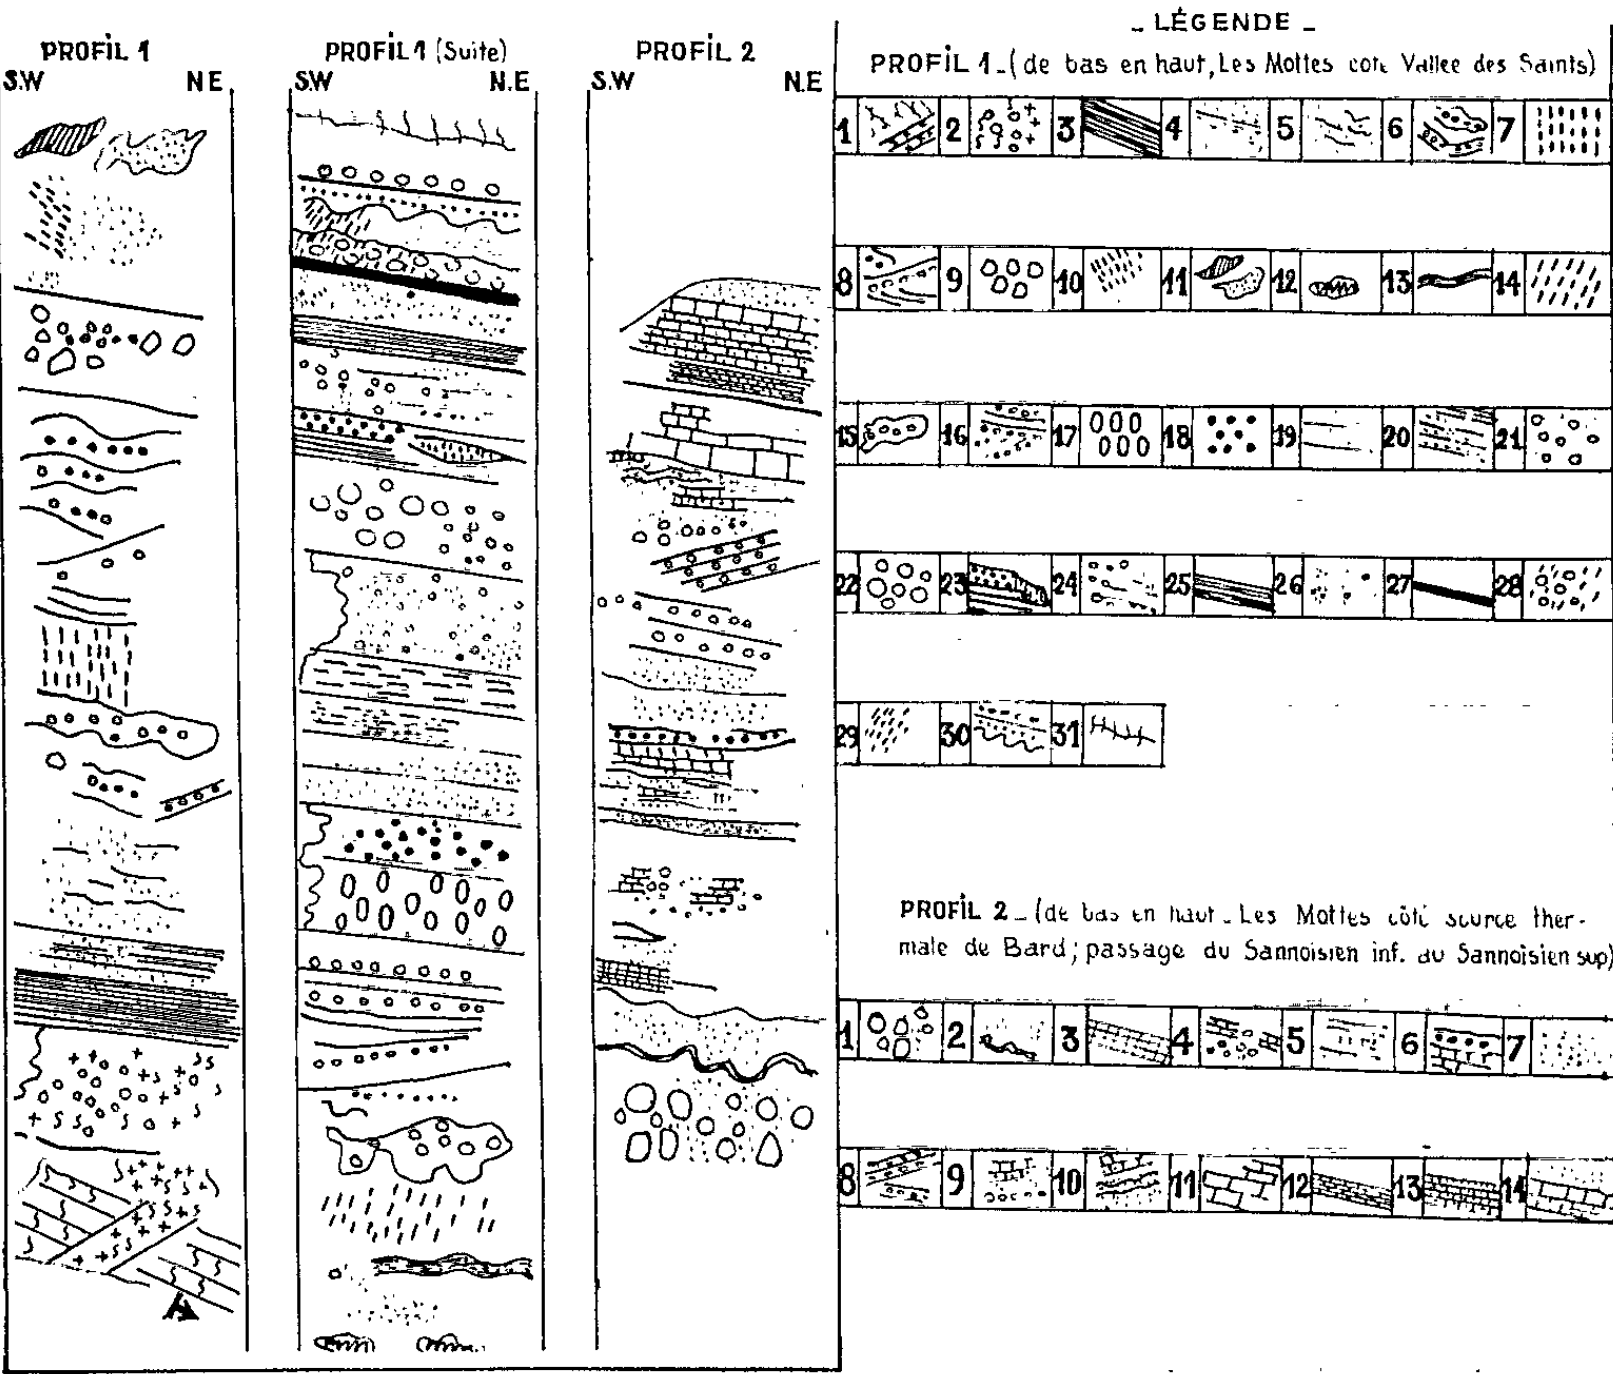 PROFIL 1
S.W NE
PROFIL 1 (Suite)
S.W N.E
PROFIL 2
S.W NE
A
- LÉGENDE -
PROFIL 1 - (de bas en haut, Les Mottes coté Vallée des Saints)
1 2 3 4 5 6 7
8 9 10 11 12 13 14
15 16 17 18 19 20 21
22 23 24 25 26 27 28
29 30 31
PROFIL 2 - (de bas en haut - Les Mottes côté source ther-
male de Bard; passage du Sannoisien inf. au Sannoisien sup)
1 2 3 4 5 6 7
8 9 10 11 12 13 14